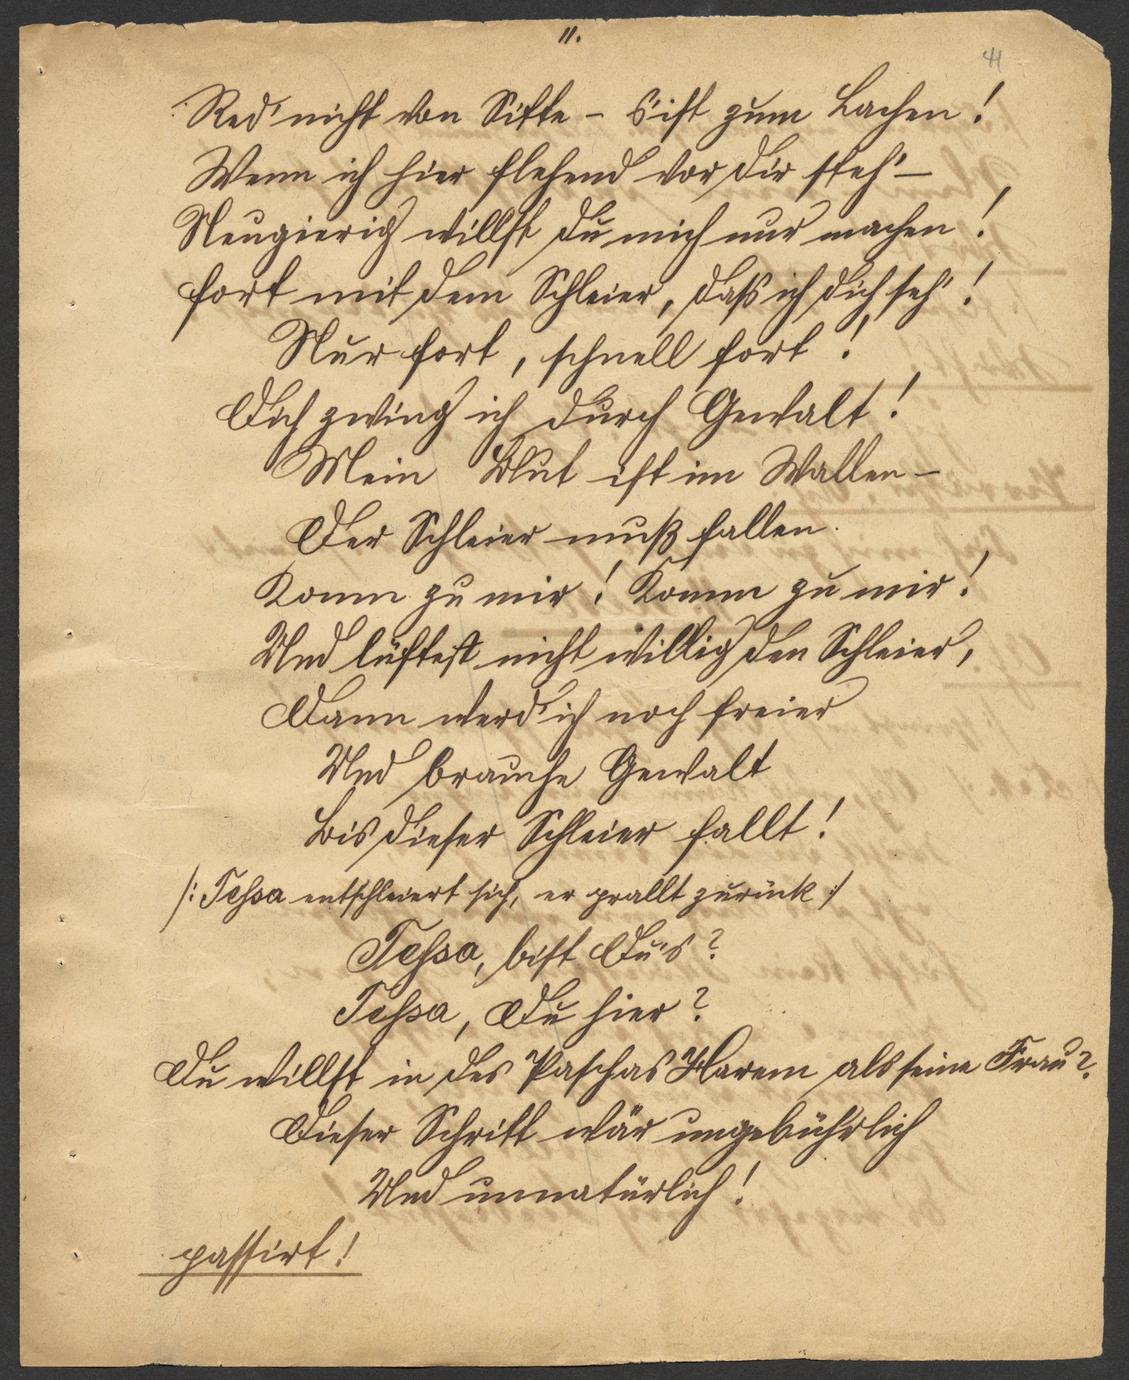 11.
41
Red' nicht von Sitte – s'ist zum Lachen!
Wenn ich hier flehend vor dir steh' –
Neugierig willst du mich nur machen!
Fort mit dem Schleier, daß ich dich seh'!
Nur fort, schnell fort!
Dich zwing ich durch Gewalt!
Mein Blut ist im Wallen –
Der Schleier muß fallen.
Komm zu mir! Komm zu mir!
Und lüftest nicht willig den Schleier,
Dann werd' ich noch freier
Und brauche Gewalt
Bis dieser Schleier fallt!
/: Tessa entschleiert sich, er prallt zurück :/
Tessa, bist Du's?
Tessa, Du hier?
Du willst in des Paschas Harem als seine Frau?
Dieser Schritt wär ungebührlich
Und unnatürlich!
passirt!